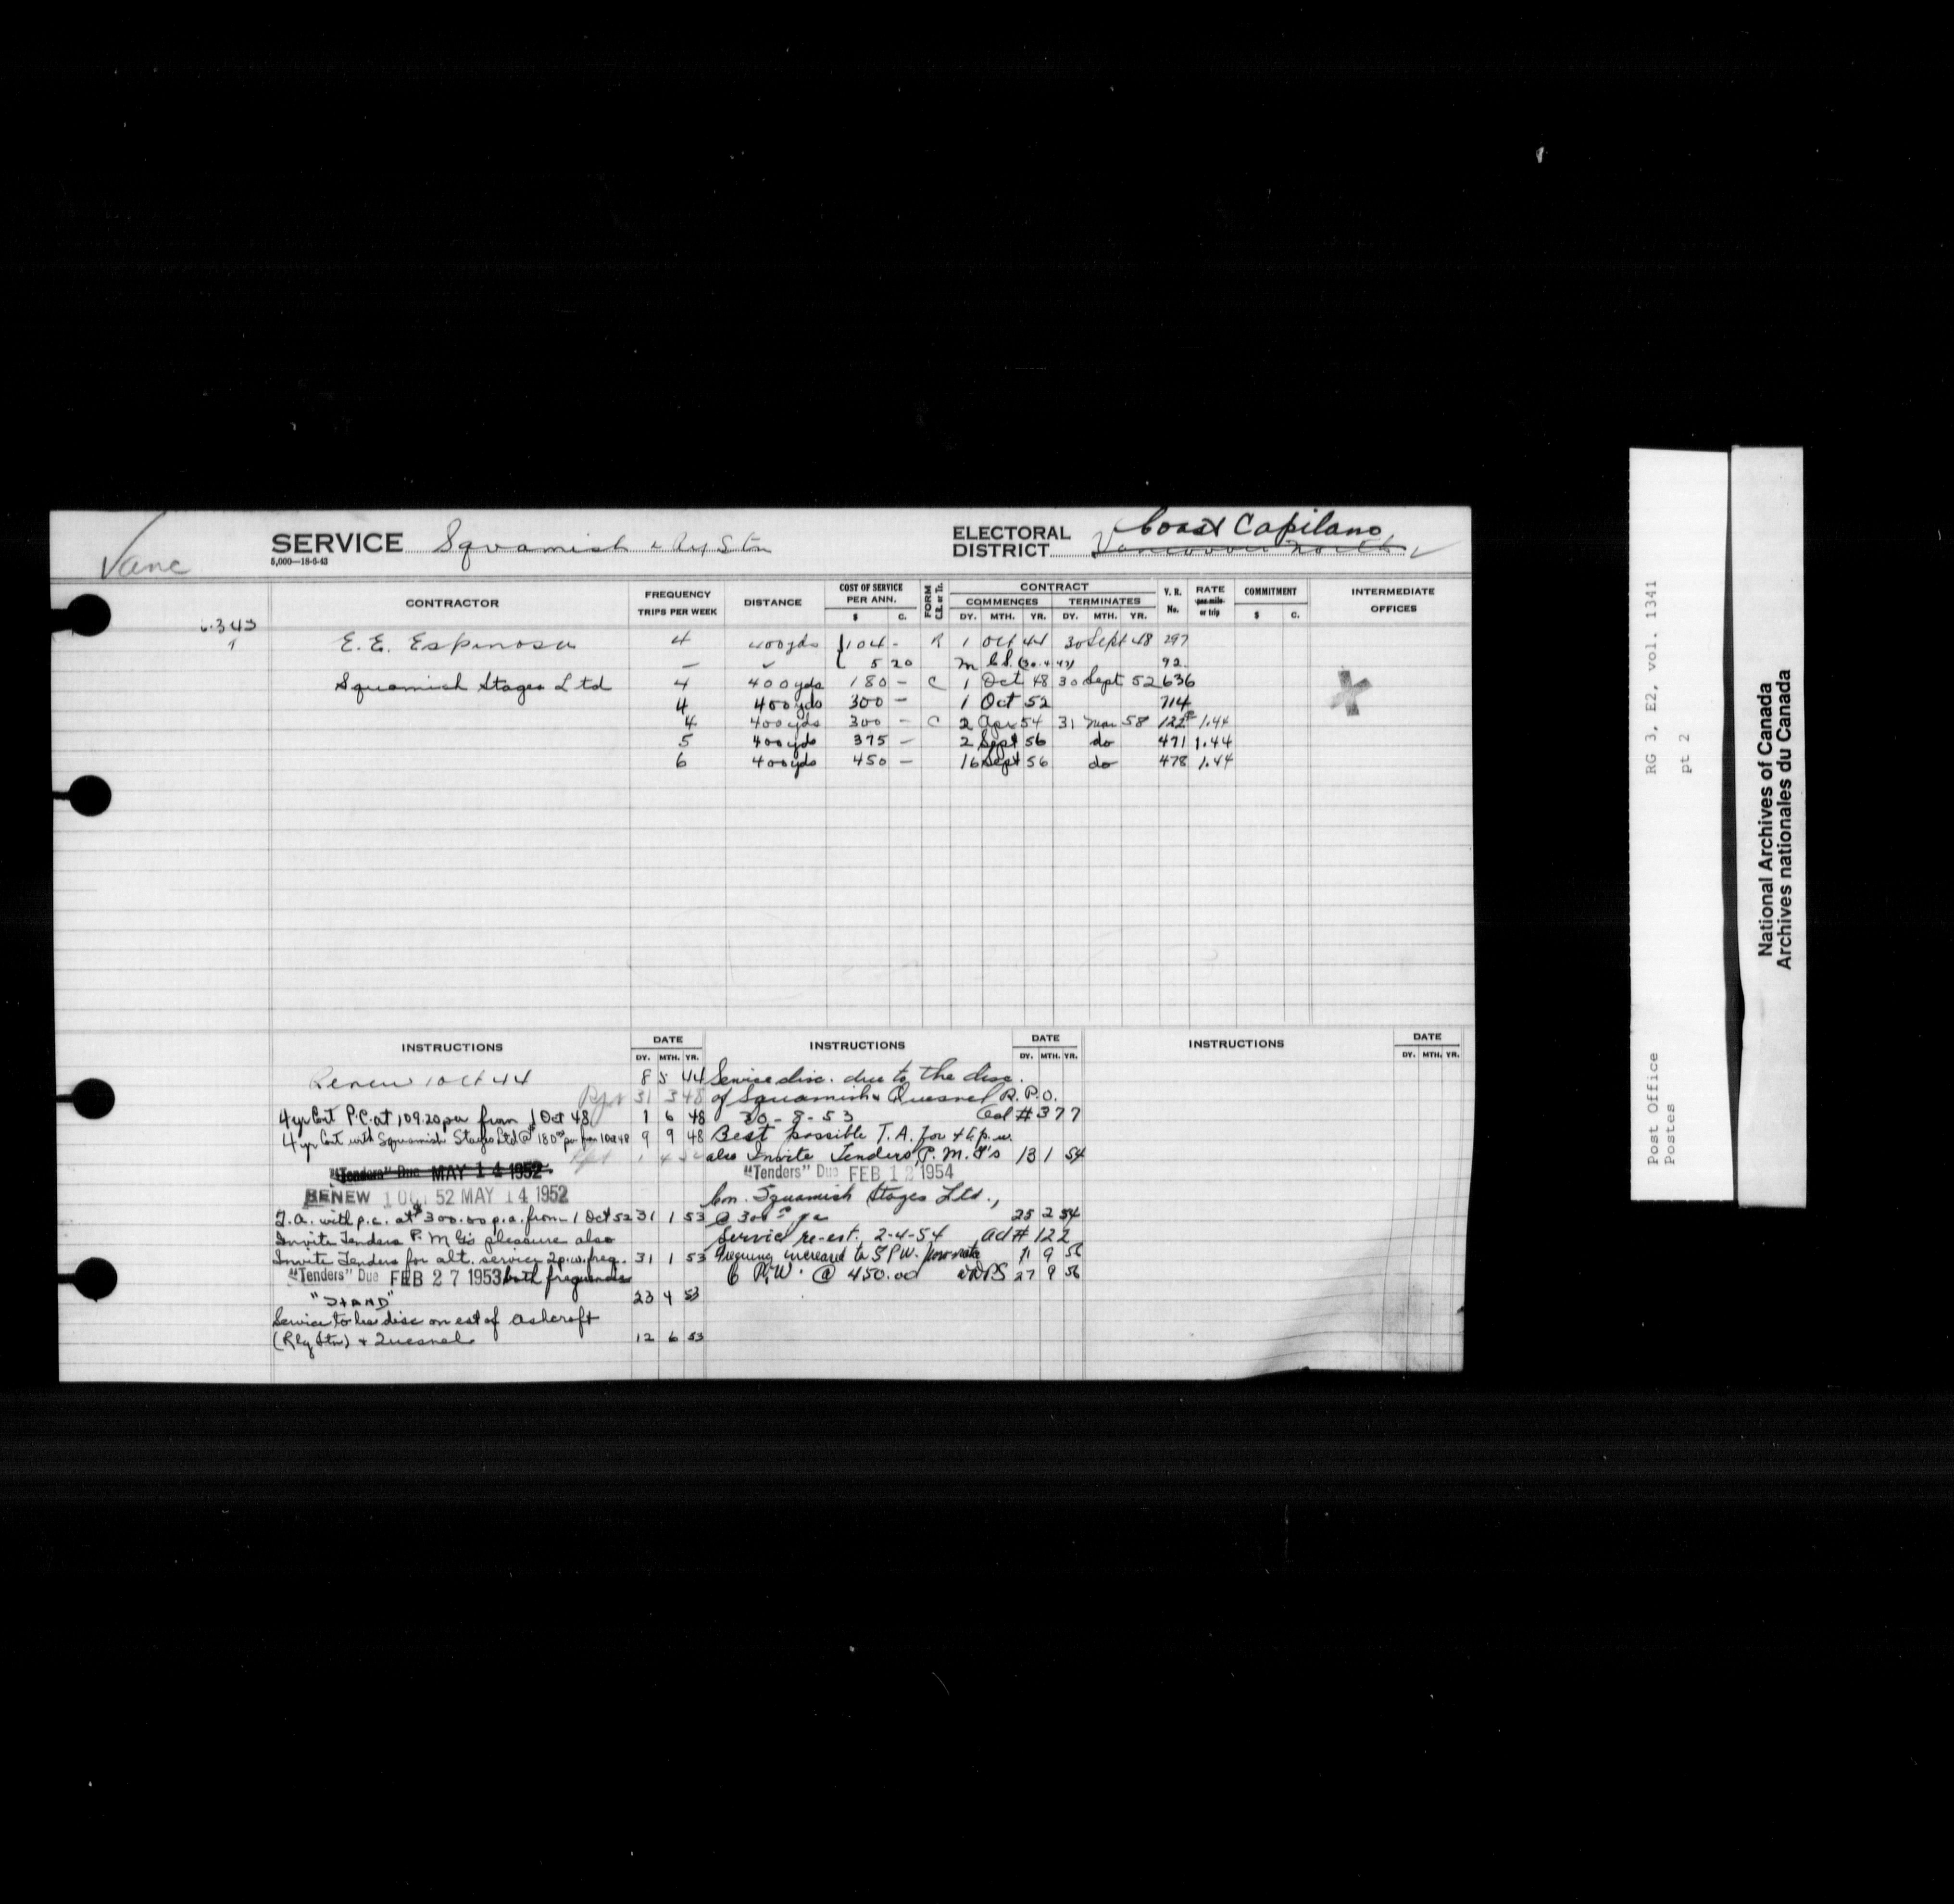 Vanc
SERVICE Squamish & Ry Stn
5,000—18-6-43
ELECTORAL DISTRICT Coast Capilano
Vancouver North
CONTRACTOR
FREQUENCY
TRIPS PER WEEK
DISTANCE
COST OF SERVICE
PER ANN.
$ C.
FORM
C.R. or Tr.
CONTRACT
COMMENCES TERMINATES
DY. MTH. YR. DY. MTH. YR.
V. R.
No.
RATE
per mile
or trip
COMMITMENT
$ C.
INTERMEDIATE
OFFICES
E. E. Espinosa 4 400yds 104 - R 1 Oct 44 30 Sept 48 297
— 5 20 92
Squamish Stages Ltd 4 400 yds 180 - C 1 Oct 48 30 Sept 52 636
4 400yds 300 — 1 Oct 52 714
4 400yds 300 - C 2 Apr 54 31 Mar 58 122 1.44
5 400yds 375 — 2 Sept 56 do 471 1.44
6 400yds 450 — 16 Sept 56 do 478 1.44
INSTRUCTIONS
DATE
DY. MTH. YR.
Renew 1 Oct 44 8 5 44
Rpt 31 3 48
4 yr Cont P.C. at 109.20 pa from 1 Oct 48 1 6 48
4 yr Cont with Squamish Stages Ltd @ $180 pa from 1 Oct 48 9 9 48
"Tenders" Due MAY 14 1952
RENEW 1 OCT 52 MAY 14 1952
T.A. with p.c. at $300.00 p.a. from 1 Oct 52 31 1 53
Invite Tenders P.M.G's pleasure also
Invite Tenders for alt. service 2 p.w. freq. 31 1 53
"Tenders" Due FEB 27 1953 both frequencies
"STAND" 23 4 53
Service to be disc on est of Ashcroft
(Rly Stn) & Quesnel 12 6 53
INSTRUCTIONS
DATE
DY. MTH. YR.
Service disc. due to the disc.
of Squamish & Quesnel R.P.O.
30-8-53 Ad #377
Best possible T.A. for 4 t.p.w.
also Invite Tenders P.M.G's 13 1 54
"Tenders" Due FEB 12 1954
Con. Squamish Stages Ltd.,
@ 300 pa 25 2 54
Service re-est. 2-4-54 Ad # 122
Frequency increased to 5 P.W. pro-rata 11 9 56
6 P.W. @ 450.00 27 9 56
INSTRUCTIONS
DATE
DY. MTH. YR.
RG 3, E2, vol. 1341
pt 2
Post Office
Postes
National Archives of Canada
Archives nationales du Canada